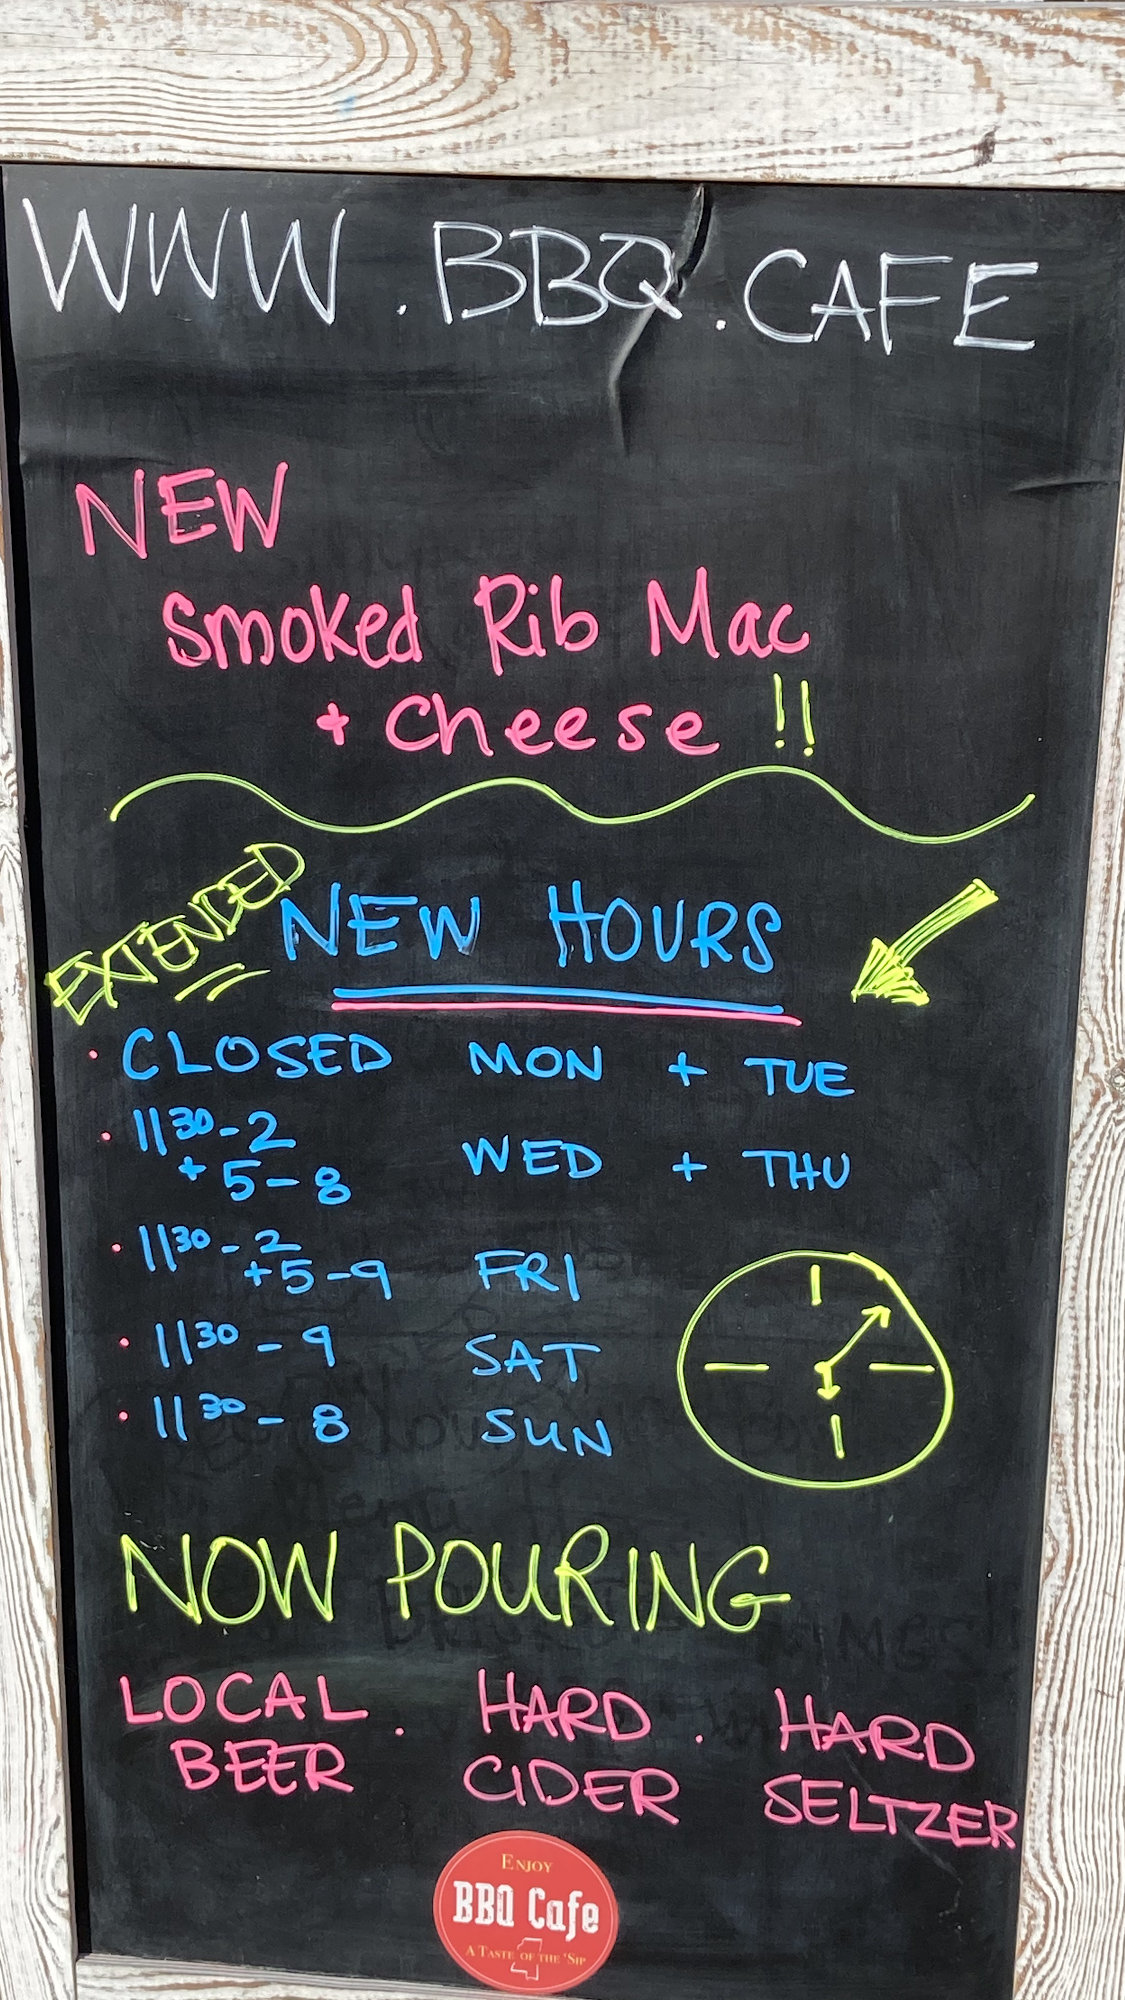 WWW.BBQ.CAFE
NEW
Smoked Rib Mac
+ Cheese !!
EXTENDED
NEW HOURS
• CLOSED MON + TUE
• 11³⁰-2
+ 5-8 WED + THU
• 11³⁰-2
+5-9 FRI
• 11³⁰-9 SAT
• 11³⁰-8 SUN
NOW POURING
LOCAL BEER . HARD CIDER . HARD SELTZER
ENJOY
BBQ Cafe
A TASTE OF THE 'SIP